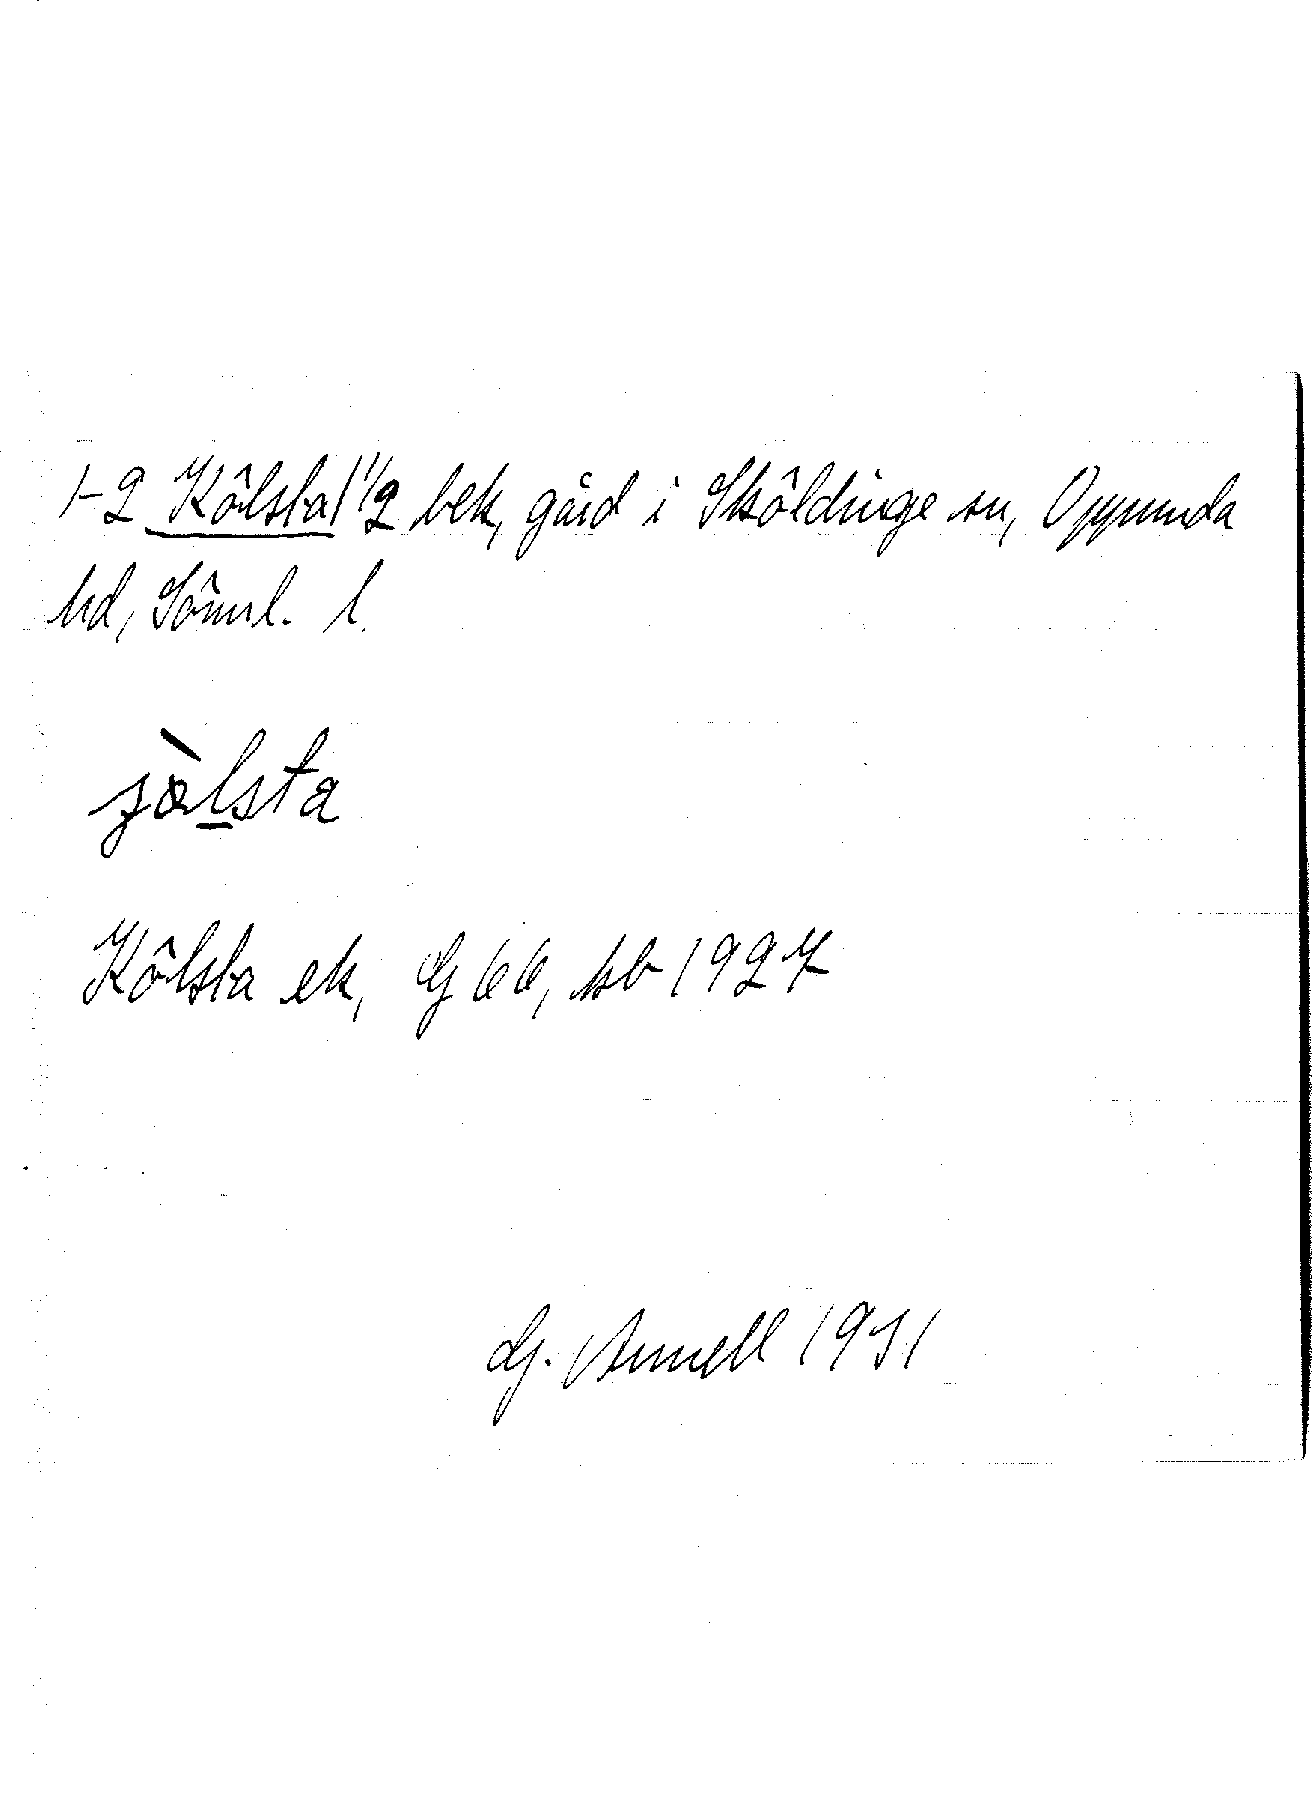 1-2 Kölsta 1 1/2 bek, gård i Sköldinge sn, Oppunda
hd, Söml. l.
Kölsta ek, G 66, bb 1927
G. Annell 1931